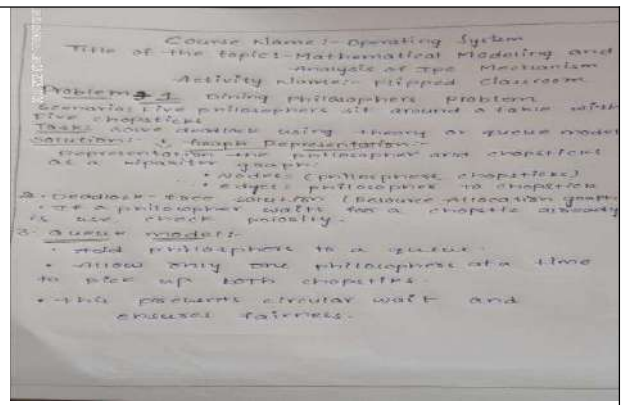 Course Name:- Operating System
Title of the topic:- Mathematical Modeling and
Analysis of IPC Mechanism
Activity Name:- Flipped Classroom
Problem 1 Dining philosophers problem
Scenario: Five philosophers sit around a table with
Five chopsticks
Task: solve deadlock using theory or queue model
Solution:- 1. Graph Representation:-
Representation the philosopher and chopsticks
as a bipartite graph:
• Nodes: (philosophers, chopsticks)
• edges: philosopher to chopstick
2. Deadlock-free solution (Resource Allocation graph
• If a philosopher waits for a chopstic already
is use check priority.
3. Queue model:-
• Add philosophers to a queue.
• Allow only one philosophers at a time
to pick up both chopstiks.
• this prevents circular wait and
ensures fairness.